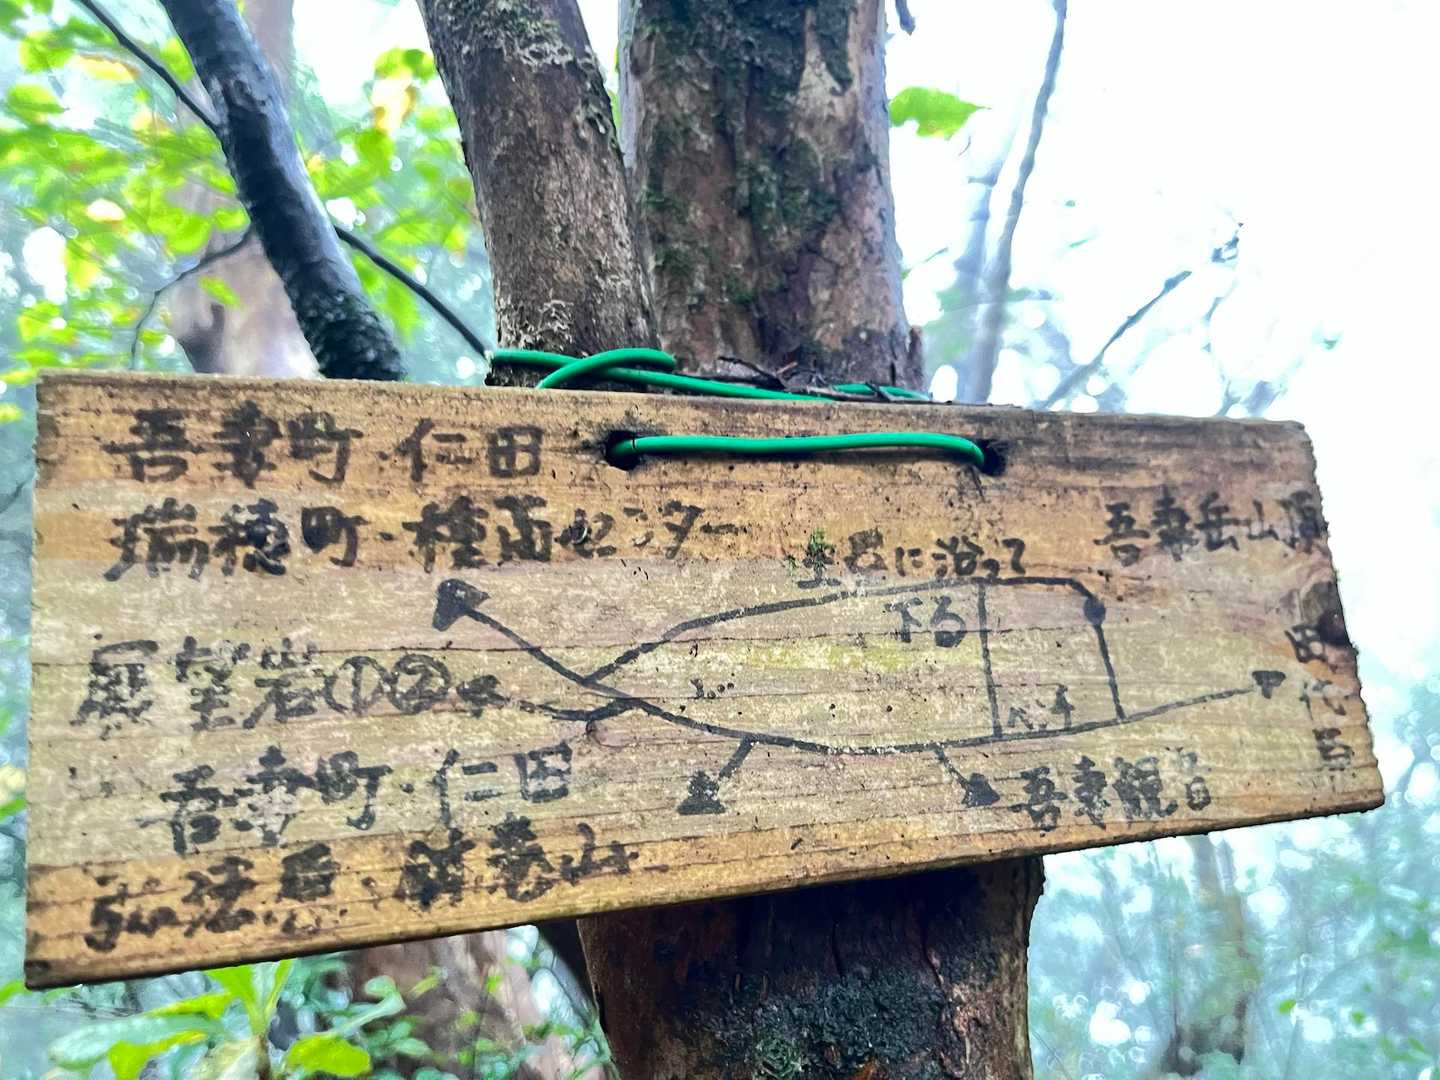 吾妻町・仁田
瑞穂町・種畜センター
吾妻岳山頂
土呂に沿って
下る
田代原
展望岩①②
ベンチ
吾妻町・仁田
吾妻観音
弘法原・鉢巻山